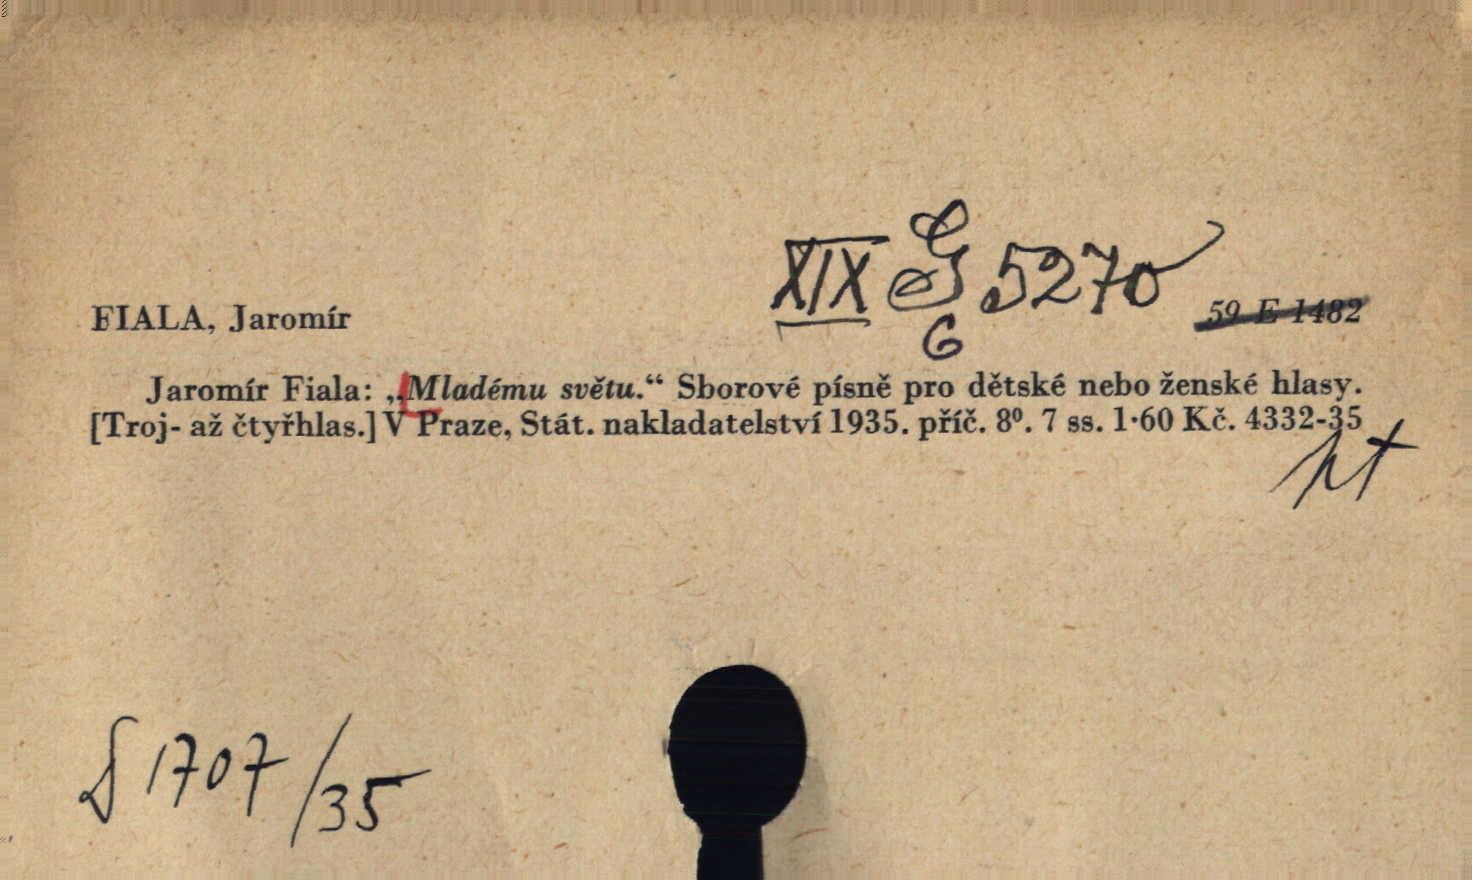 XIX G 5270
G
59 E 1482
FIALA, Jaromír
Jaromír Fiala: „Mladému světu.“ Sborové písně pro dětské nebo ženské hlasy.
[Troj- až čtyřhlas.] V Praze, Stát. nakladatelství 1935. příč. 8⁰. 7 ss. 1·60 Kč. 4332-35
1707/35